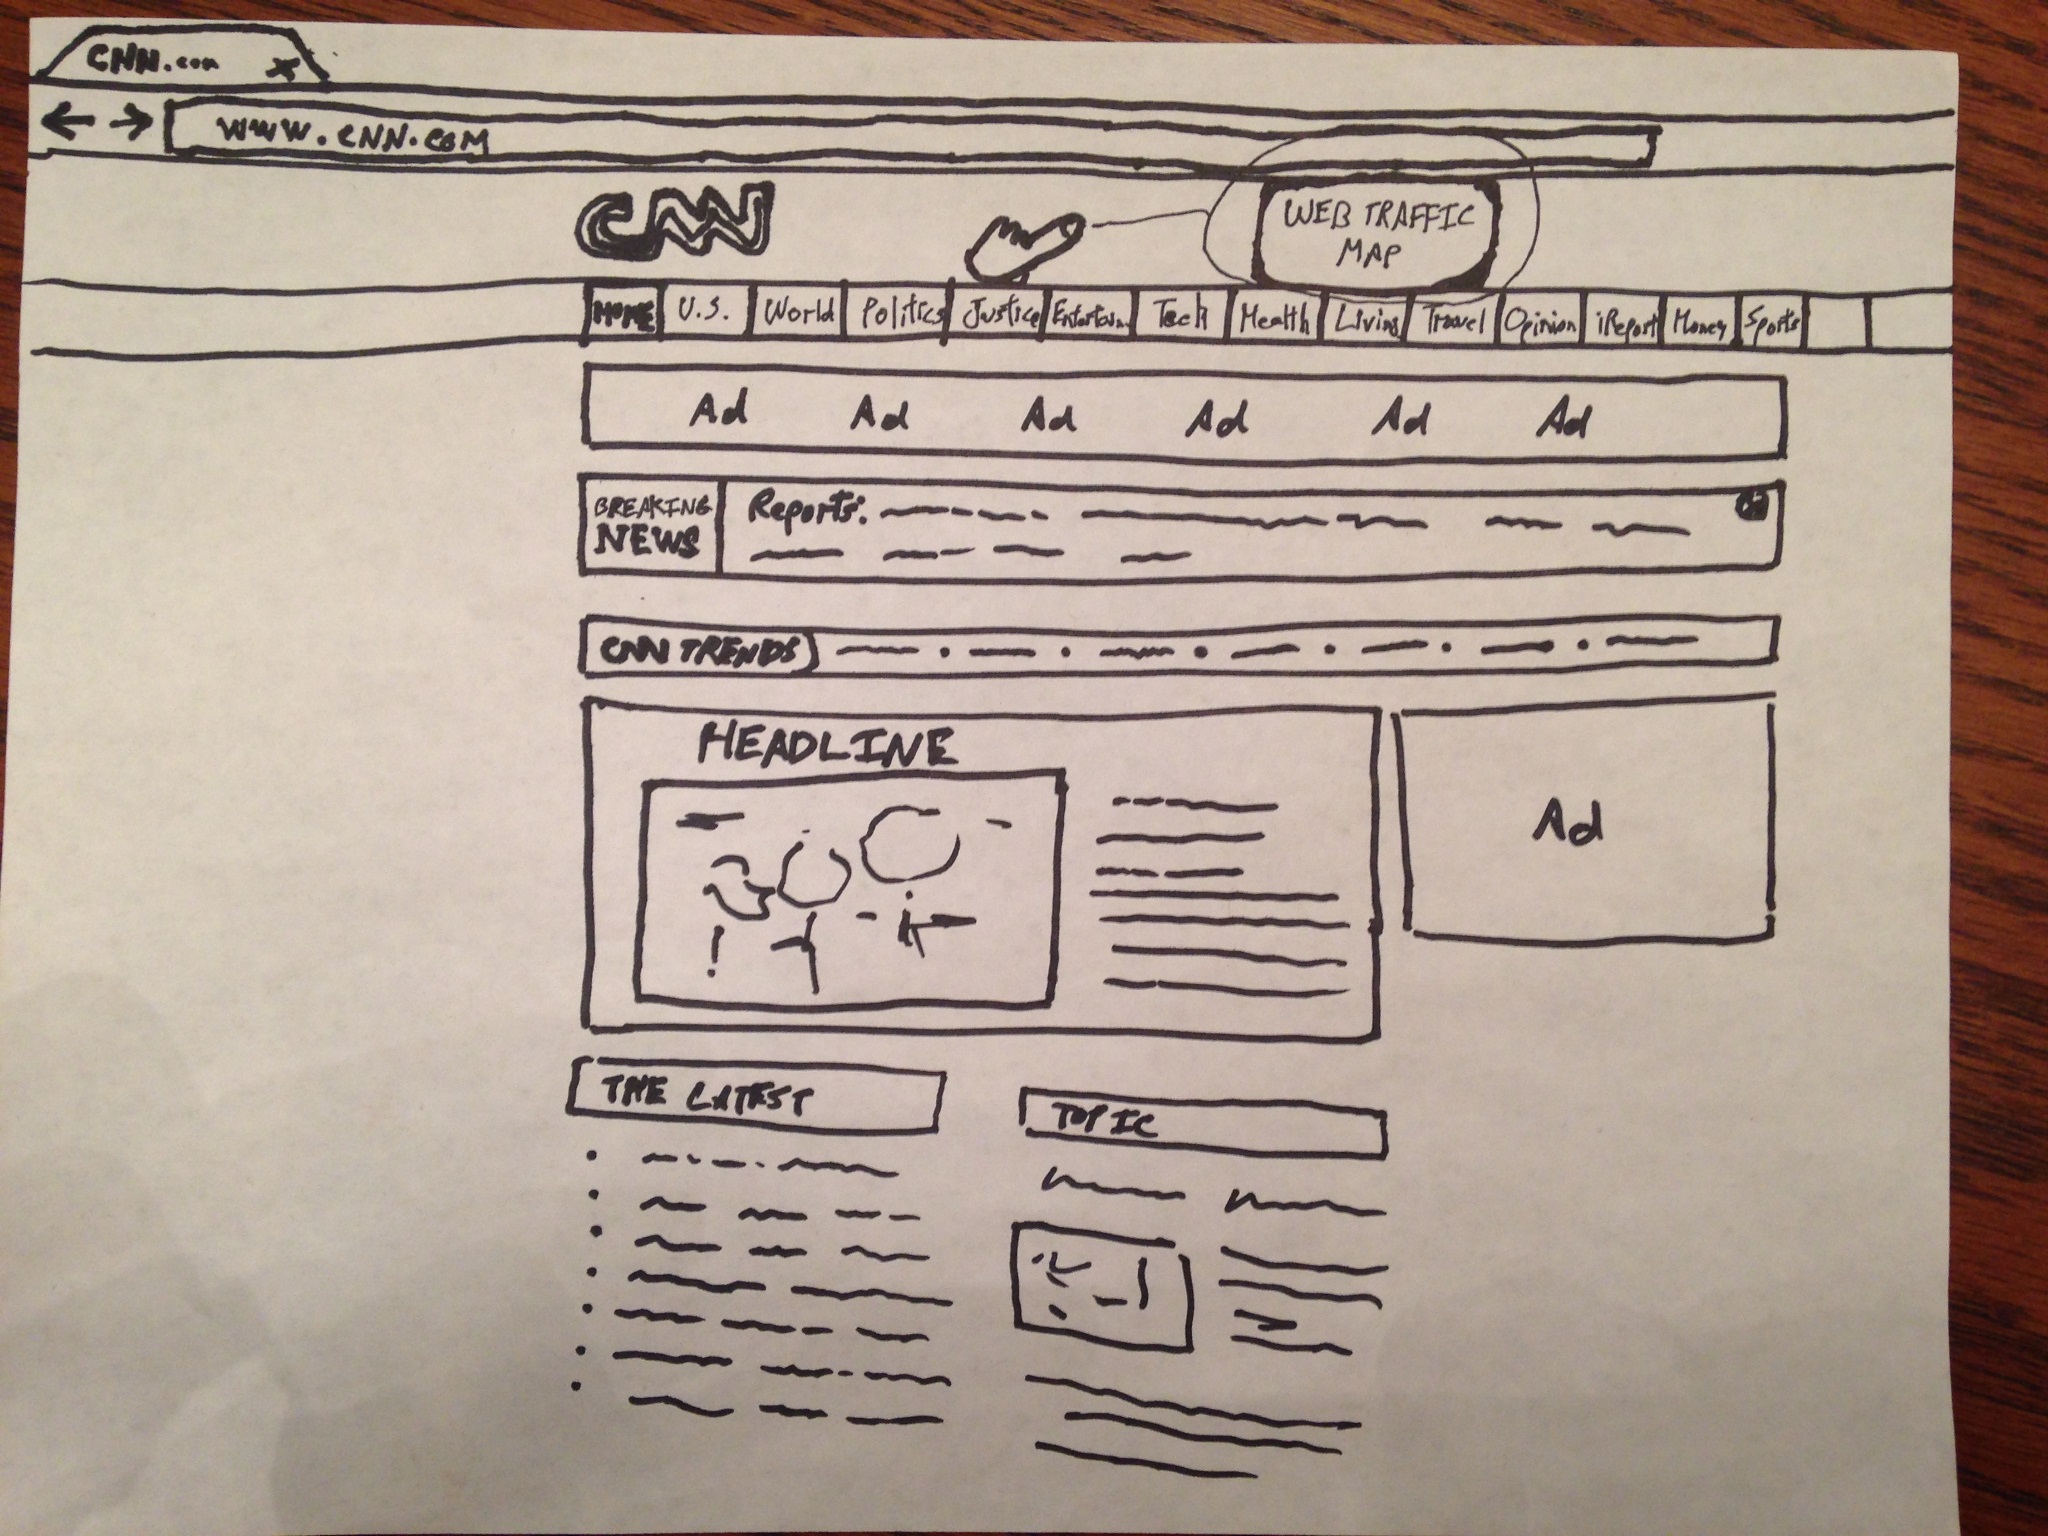 CNN.com x
www.CNN.com
CNN
WEB TRAFFIC
MAP
HOME U.S. World Politics Justice Entertain Tech Health Living Travel Opinion iReport Money Sports
Ad Ad Ad Ad Ad Ad
BREAKING
NEWS
Reports:
CNN TRENDS
HEADLINE
Ad
THE LATEST
TOPIC